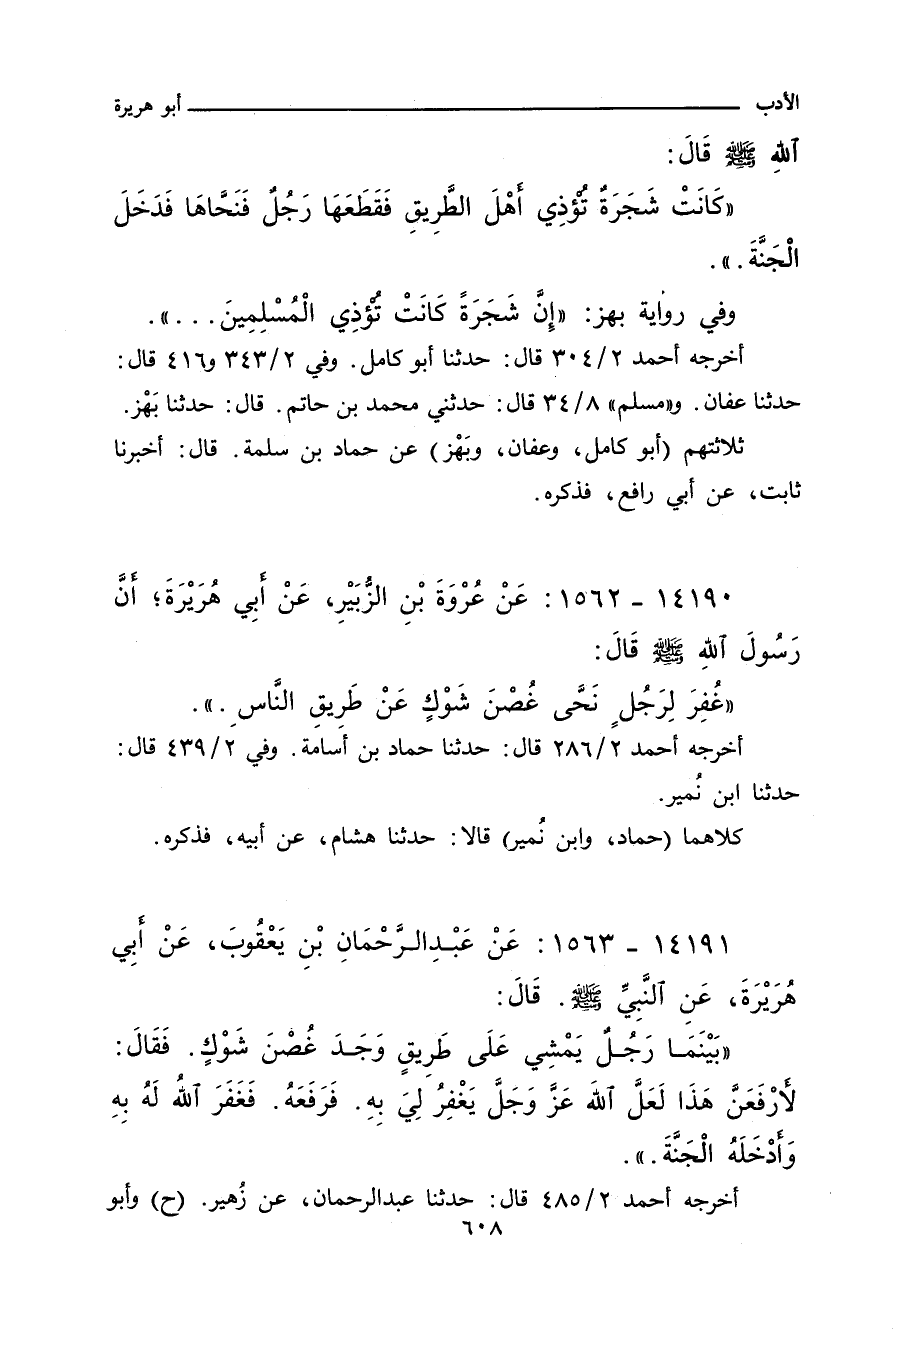 الأدب ــــــــــــــــــــــــــــــــــــــــ أبو هريرة
ٱللهِ ﷺ قَالَ:
«كَانَتْ شَجَرَةٌ تُؤْذِي أَهْلَ الطَّرِيقِ فَقَطَعَهَا رَجُلٌ فَنَحَّاهَا فَدَخَلَ
الْجَنَّةَ.».
وفي رواية بهز: «إِنَّ شَجَرَةً كَانَتْ تُؤْذِي الْمُسْلِمِينَ...».
أخرجه أحمد ٣٠٤/٢ قال: حدثنا أبو كامل. وفي ٣٤٣/٢ و٤١٦ قال:
حدثنا عفان. و«مسلم» ٣٤/٨ قال: حدثني محمد بن حاتم. قال: حدثنا بَهْز.
ثلاثتهم (أبو كامل، وعفان، وبَهْز) عن حماد بن سلمة. قال: أخبرنا
ثابت، عن أبي رافع، فذكره.
١٤١٩٠ - ١٥٦٢: عَنْ عُرْوَةَ بْنِ الزُّبَيْرِ، عَنْ أَبِي هُرَيْرَةَ؛ أَنَّ
رَسُولَ ٱللهِ ﷺ قَالَ:
«غُفِرَ لِرَجُلٍ نَحَّى غُصْنَ شَوْكٍ عَنْ طَرِيقِ النَّاسِ.».
أخرجه أحمد ٢٨٦/٢ قال: حدثنا حماد بن أسامة. وفي ٤٣٩/٢ قال:
حدثنا ابن نُمير.
كلاهما (حماد، وابن نُمير) قالا: حدثنا هشام، عن أبيه، فذكره.
١٤١٩١ - ١٥٦٣: عَنْ عَبْدِالرَّحْمَانِ بْنِ يَعْقُوبَ، عَنْ أَبِي
هُرَيْرَةَ، عَنِ ٱلنَّبِيِّ ﷺ. قَالَ:
«بَيْنَمَا رَجُلٌ يَمْشِي عَلَى طَرِيقٍ وَجَدَ غُصْنَ شَوْكٍ. فَقَالَ:
لأَرْفَعَنَّ هَذَا لَعَلَّ ٱللهَ عَزَّ وَجَلَّ يَغْفِرُ لِيَ بِهِ. فَرَفَعَهُ. فَغَفَرَ ٱللهُ لَهُ بِهِ
وَأَدْخَلَهُ الْجَنَّةَ.».
أخرجه أحمد ٤٨٥/٢ قال: حدثنا عبدالرحمان، عن زُهير. (ح) وأبو
٦٠٨